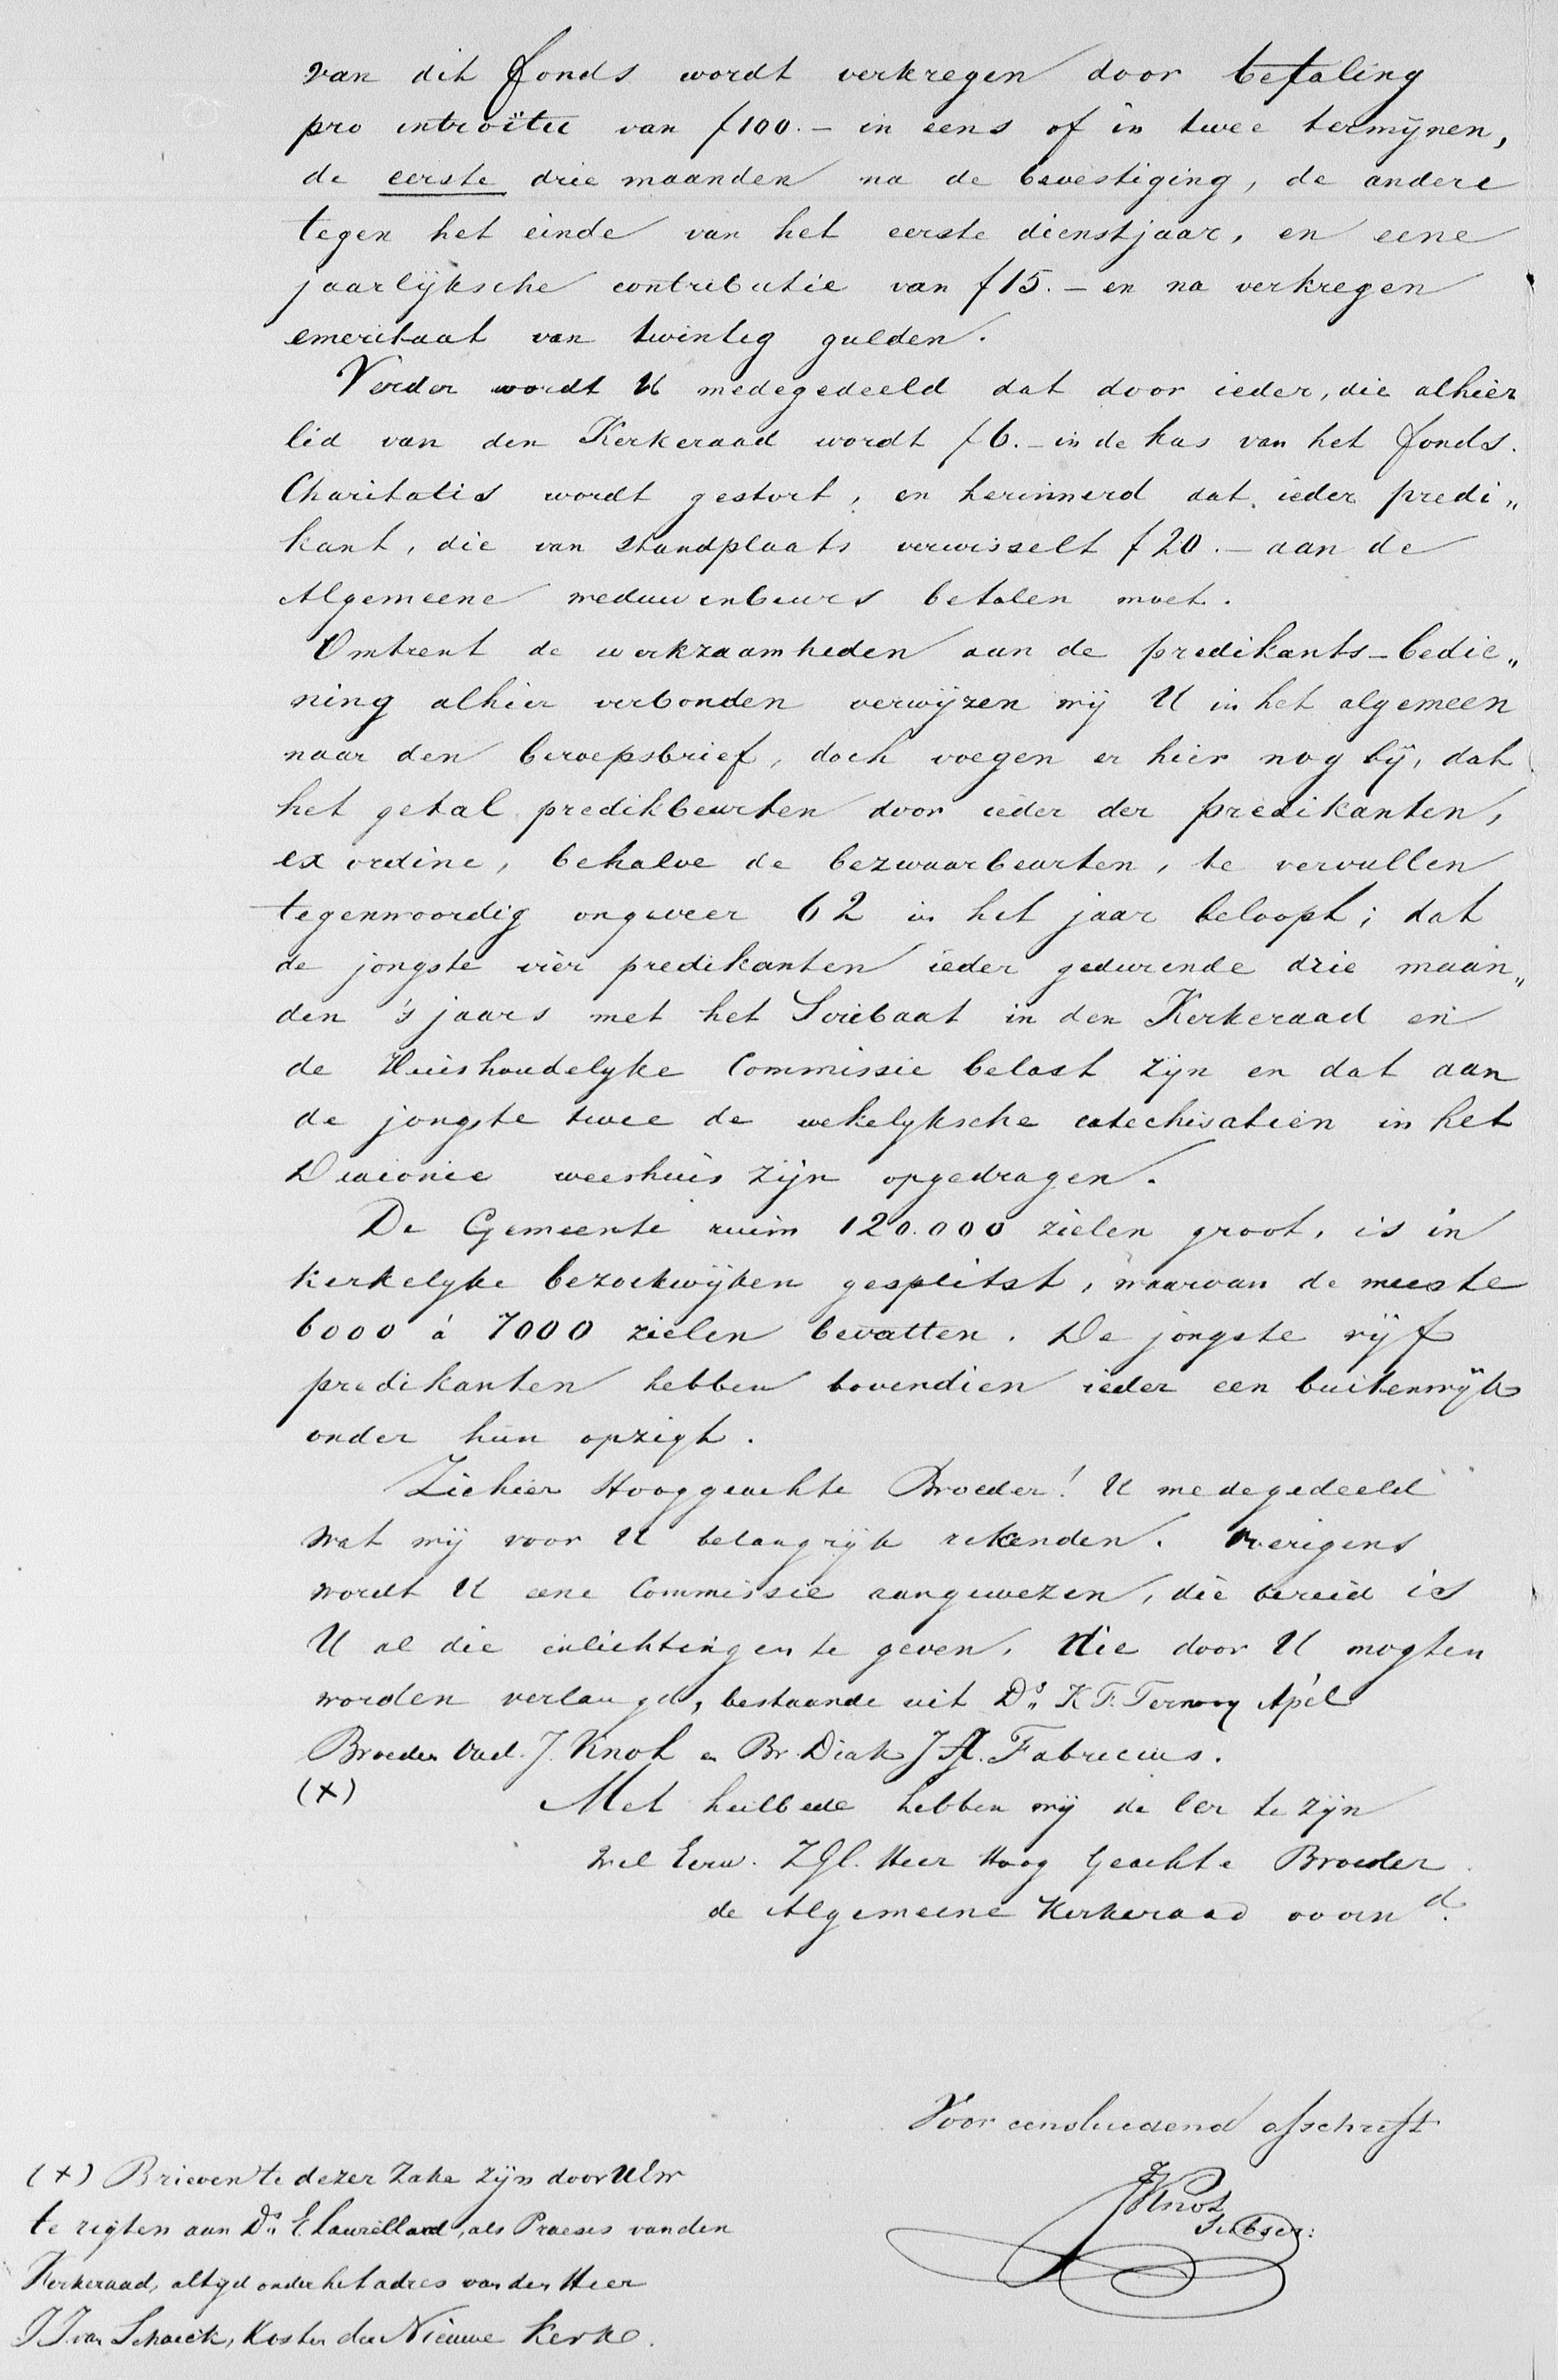 van dit fonds wordt verkregen door betaling
pro introïtu van f100.- in eens of in twee termijnen,
de eerste drie maanden na de bevestiging, de andere
tegen het einde van het eerste dienstjaar, en eene
jaarlijksche contributie van f15.- en na verkregen
emeritaat van twintig gulden.
Verder wordt U medegedeeld dat door ieder, die alhier
lid van den Kerkeraad wordt f6.- in de kas van het fonds.
Charitatis wordt gestort, en herinnerd dat ieder predi„
kant, die van standplaats verwisselt f20.- aan de
Algemeene weduwenbeurs betalen moet.
Omtrent de werkzaamheden aan de predikants-bedie„
ning alhier verbonden verwijzen wij U in het algemeen
naar den beroepsbrief, doch voegen er hier nog bij, dat
het getal predikbeurten door ieder der predikanten,
ex ordine, behalve de bezwaarbeurten, te vervullen
tegenwoordig ongeveer 62 in het jaar beloopt; dat
de jongste vier predikanten ieder gedurende drie maan„
den 's jaars met het Scribaat in den Kerkeraad en
de Huishoudelyke Commissie belast zijn en dat aan
de jongste twee de wekelyksche catechisatien in het
Diaconie weeshuis zijn opgedragen.
De Gemeente ruim 120.000 zielen groot, is in
kerkelyke bezoekwijken gesplitst, waarvan de meeste
6000 à 7000 zielen bevatten. De jongste vijf
predikanten hebben bovendien ieder een buitenwijk
onder hun opzigt.
Ziehier Hooggeachte Broeder! U medegedeeld
wat wij voor U belangrijk rekenden. Overigens
wordt U eene Commissie aangewezen, die bereid is
U al die inlichtingen te geven, die door U mogten
worden verlangd, bestaande uit Ds. K F. Ternooy Apèl
Broeder Oud. J. Knol en Br. Diak J A. Fabricius.
(X) Met heilbede hebben wij de Eer te zijn
Wel Eerw. ZGl. Heer Hoog Geachte Broeder
de Algemeene Kerkeraad voornd.
Voor eensluidend afschrift
J Knol
Subscr:
(X) Brieven te dezer zake zijn door UEw
te rigten aan Ds. E Laurillard, als Praeses van den
Kerkeraad, altyd onder het adres van den Heer
J J. van Schaick, Koster der Nieuwe Kerk.